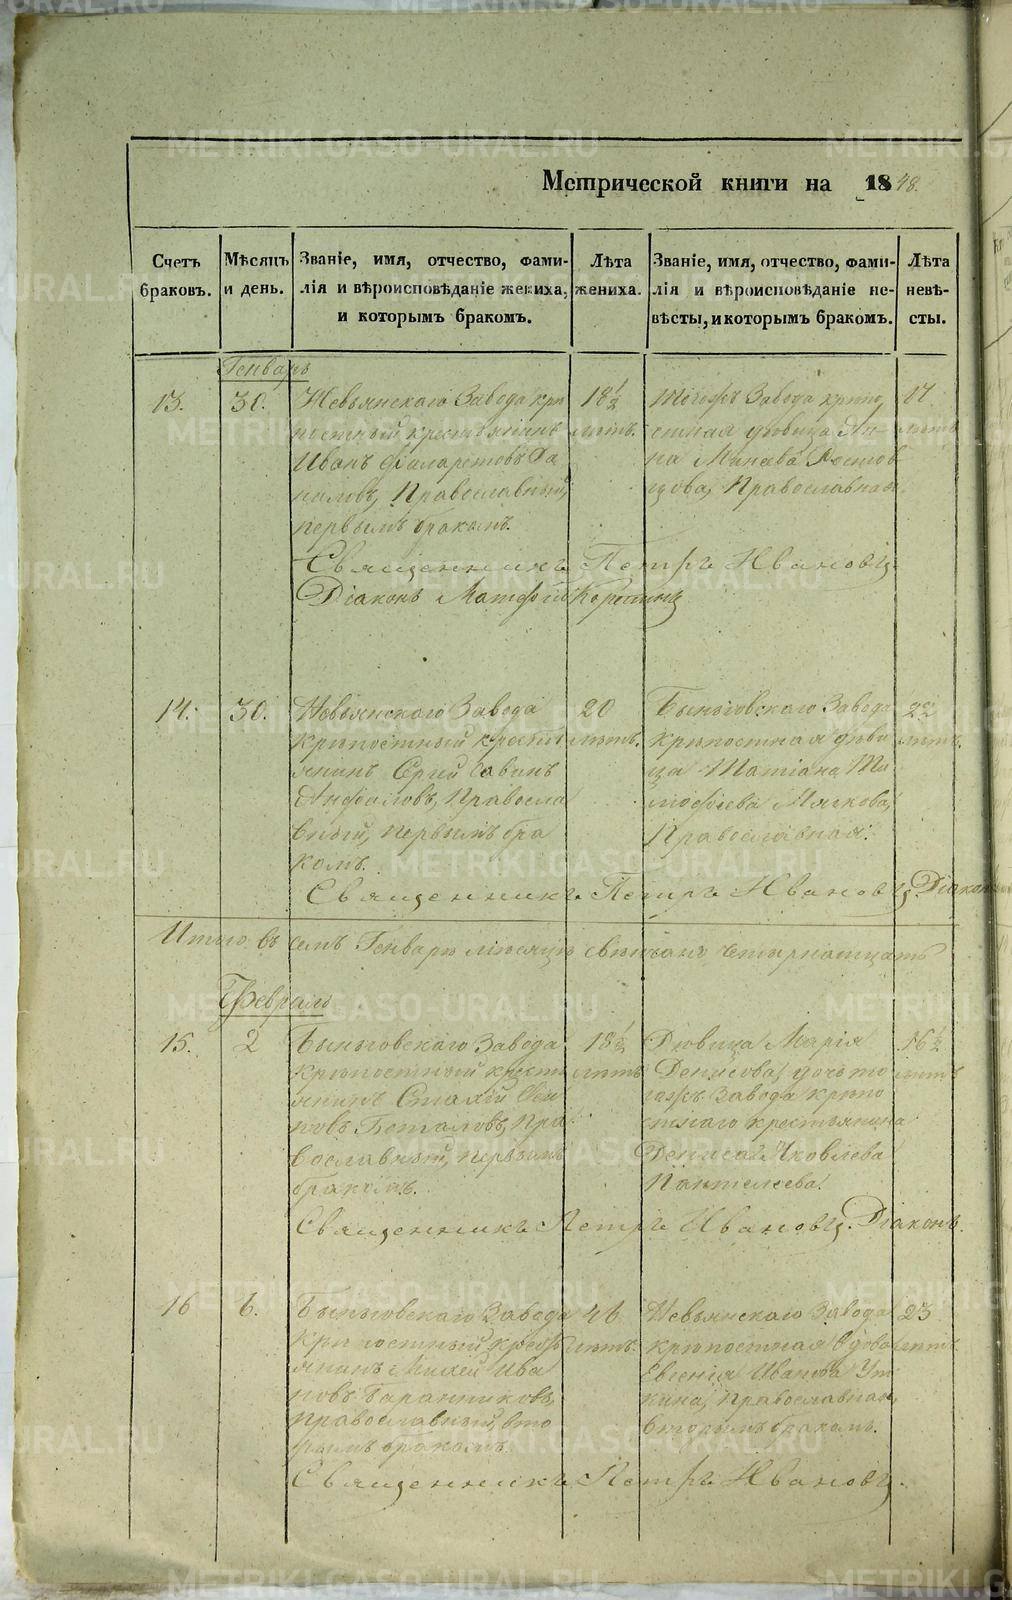 Метрической книги на 1848.
Счетъ браковъ.
Мѣсяцъ и день.
Званіе, имя, отчество, фами-
лія и вѣроисповѣданіе жениха,
и которымъ бракомъ.
Лѣта жениха.
Званіе, имя, отчество, фами-
лія и вѣроисповѣданіе не-
вѣсты, и которымъ бракомъ.
Лѣта невѣ-
сты.
Генварь
13.
30.
Невьянскаго Завода крѣ
постный крестьянинъ
Иванъ Филаретовъ Да
ниловъ, Православный,
первымъ бракомъ.
18 1/2
лѣтъ.
Тогожъ Завода крѣпо
стная дѣвица Ан-
на Минаева Ростов
цова, Православная.
17
лѣтъ
Священникъ Петръ Ивановъ.
Діаконъ Матфій
14.
30.
Невьянскаго Завода
крѣпостный кресть
янинъ Сергій Савинъ
Анфаловъ, Правосла
вный, первымъ бра
комъ.
20
лѣтъ.
Быньговскаго Завода
крѣпостная дѣви
ца Татіана Ти
мофѣева Мягкова,
Православная.
22
лѣтъ.
Священникъ Петръ Ивановъ. Діаконъ
Итого въ семъ Генварѣ мѣсяцѣ свѣнчано четырнатцать
Февраль
15.
2
Быньговскаго Завода
крѣпостный кресть
янинъ
Пра
вославный, первымъ
бракомъ.
18 1/2
лѣтъ
Дѣвица Марія
Денисова, дочь то
гожъ Завода крѣпо
стнаго крестьянина
Дениса Яковлева
Пантелеева.
16 1/2
лѣтъ
Священникъ Петръ Ивановъ. Діаконъ
16
6.
Быньговскаго Завода
крѣпостный кресть
янинъ Михей Ива
новъ Баранниковъ,
православный, вто
рымъ бракомъ.
46
лѣтъ.
Невьянскаго Завода
крѣпостная вдова
Евгенія Иванова Ут
кина, Православная,
вторымъ бракомъ.
23
лѣтъ.
Священникъ Петръ Ивановъ.
METRIKI.GASO-URAL.RU